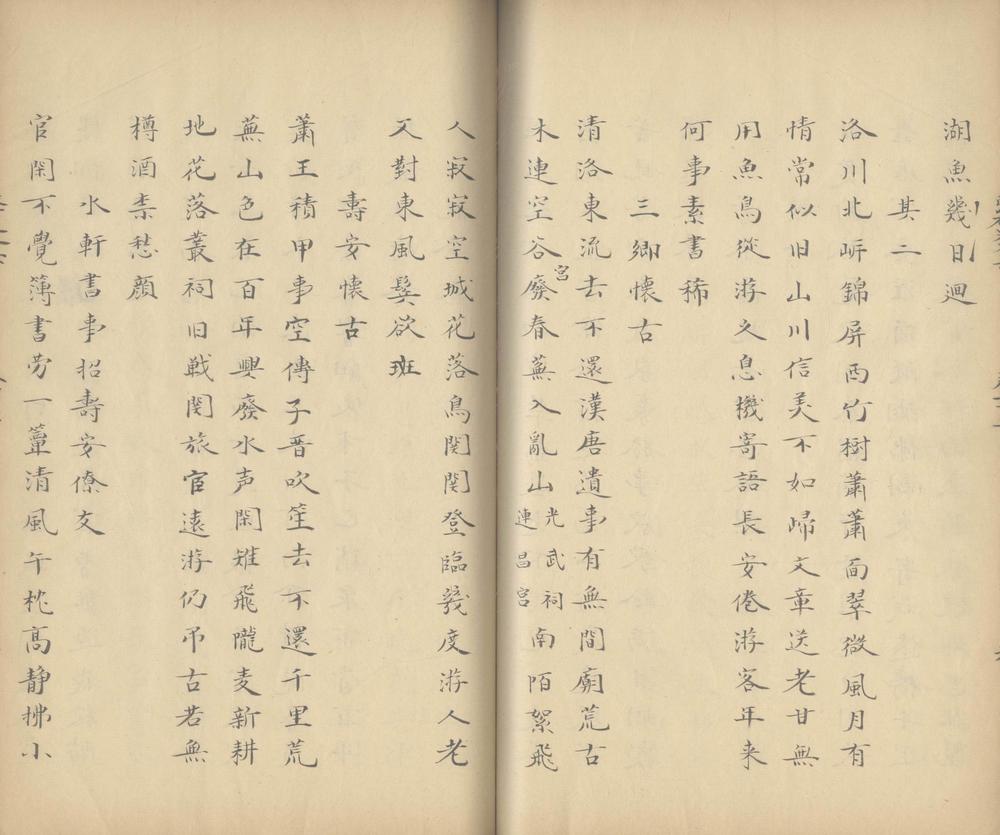 湖魚幾日迴
其二
洛川北㟁錦屏西竹樹蕭蕭面翠微風月有
情常似旧山川信美不如歸文章送老甘無
用魚鳥從游久息機寄語長安倦游客年来
何事素書稀
三鄉懷古
清洛東流去不還漢唐遺事有無間廟荒古
木連空谷宮廢春蕪入亂山光武祠連昌宮南陌絮飛
人寂寂空城花落鳥関関登臨幾度游人老
又對東風鬓欲班
壽安懷古
蕭王積甲事空傳子晋吹笙去不還千里荒
蕪山色在百年興廢水声閑雉飛隴麦新耕
地花落叢祠旧戦関旅宦遠游仍吊古若無
樽酒柰愁顔
水軒書事招壽安僚友
官閑不覺簿書劳一簟清風午枕高静拂小